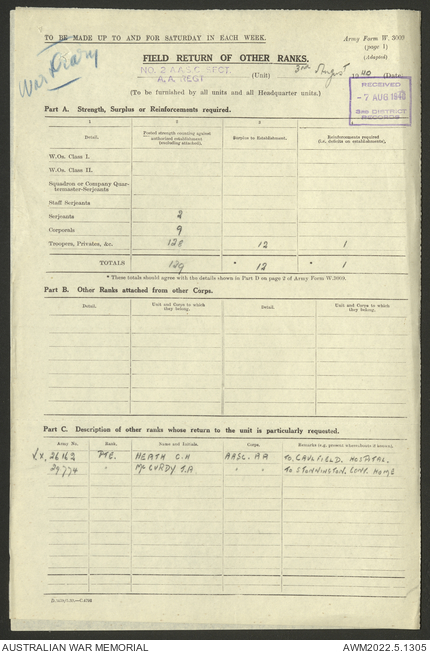 TO BE MADE UP TO AND FOR SATURDAY IN EACH WEEK.
Army Form W. 3009
(page 1)
(Adapted)
War Diary
FIELD RETURN OF OTHER RANKS.
NO. 2 A.A.S.C. SECT.
A.A. REGT
(Unit)
3rd August 1940 (Date)
(To be furnished by all units and all Headquarter units.)
RECEIVED
- 7 AUG 1940
DISTRICT
RECORDS
Part A. Strength, Surplus or Reinforcements required.
1 2 3
Detail. Posted strength counting against authorized establishment (excluding attached). Surplus to Establishment. Reinforcements required (i.e., deficits on establishments).
W.Os. Class I.
W.Os. Class II.
Squadron or Company Quar-
termaster-Serjeants
Staff Serjeants
Serjeants 2
Corporals 9
Troopers, Privates, &c. 12 1
TOTALS 129 * 12 * 1
* These totals should agree with the details shown in Part D on page 2 of Army Form W.3009.
Part B. Other Ranks attached from other Corps.
Detail. Unit and Corps to which they belong. Detail. Unit and Corps to which they belong.
Part C. Description of other ranks whose return to the unit is particularly requested.
Army No. Rank. Name and Initials. Corps. Remarks (e.g., present whereabouts if known).
VX. 26162 PTE. HEATH C.H AASC. AA TO. CAULFIELD. HOSPITAL.
29774 " McCURDY T.A " " TO STONNINGTON. CONV. HOME
AUSTRALIAN WAR MEMORIAL
AWM2022.5.1305